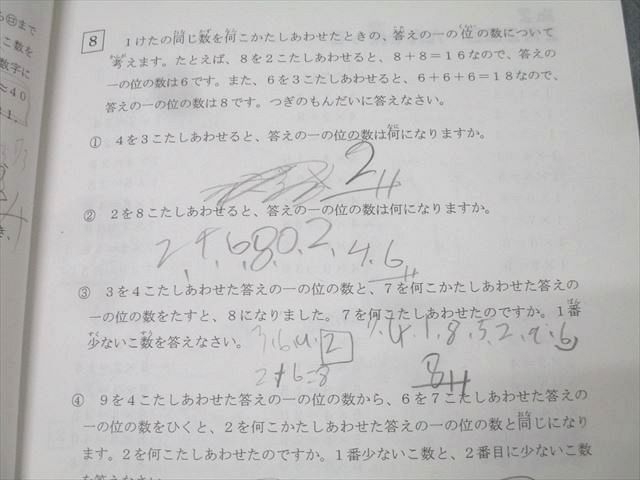 ら㊐まで
こ数を
数字に
＝40
8 1けたの同じ数を何こかたしあわせたときの、答えの一の位の数について
考えます。たとえば、8を2こたしあわせると、8＋8＝16なので、答えの
一の位の数は6です。また、6を3こたしあわせると、6＋6＋6＝18なので、
答えの一の位の数は8です。つぎのもんだいに答えなさい。
① 4を3こたしあわせると、答えの一の位の数は何になりますか。
2
② 2を8こたしあわせると、答えの一の位の数は何になりますか。
2,4,6,8,0,2,4,6
③ 3を4こたしあわせた答えの一の位の数と、7を何こかたしあわせた答えの
一の位の数をたすと、8になりました。7を何こたしあわせたのですか。1番
少ないこ数を答えなさい。
2+6=8
8
④ 9を4こたしあわせた答えの一の位の数から、6を7こたしあわせた答えの
一の位の数をひくと、2を何こかたしあわせた答えの一の位の数と同じになり
ます。2を何こたしあわせたのですか。1番少ないこ数と、2番目に少ないこ数
を答えなさい。